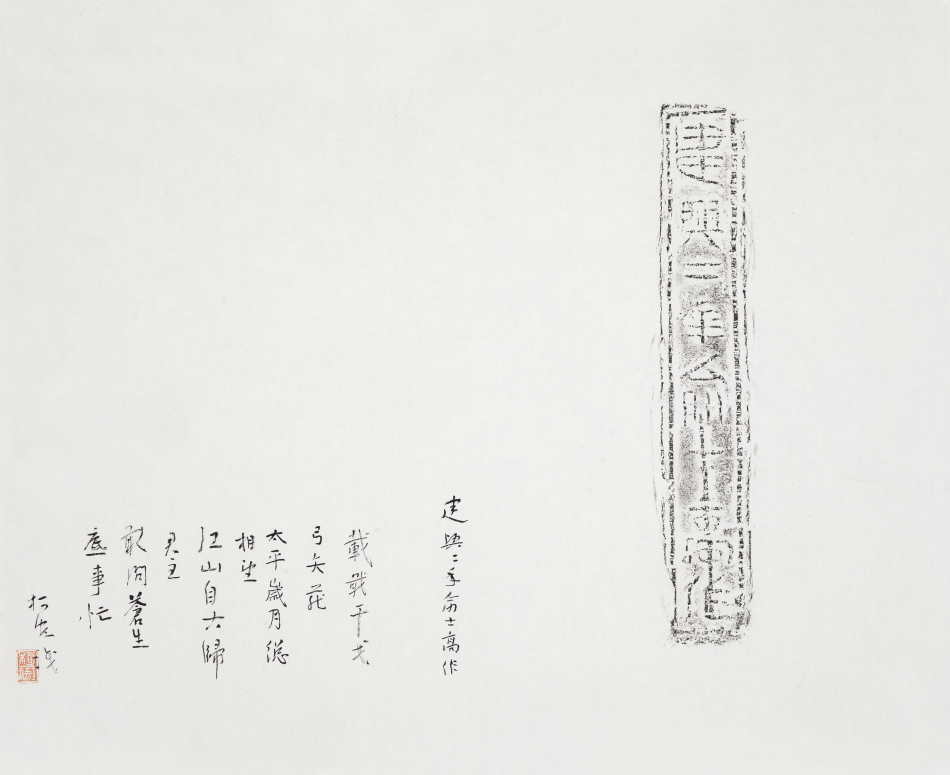 建興二年俞士高作
建興二年俞士高作
載戢干戈
弓矢藏
太平歲月總
相望
江山自古歸
君主
敢問蒼生
底事忙